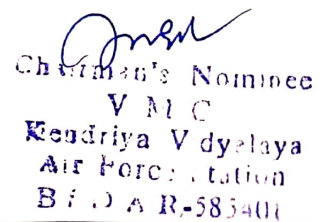 Chairman's Nominee
V M C
Kendriya V dyalaya
Air Force Station
B I D A R-585401